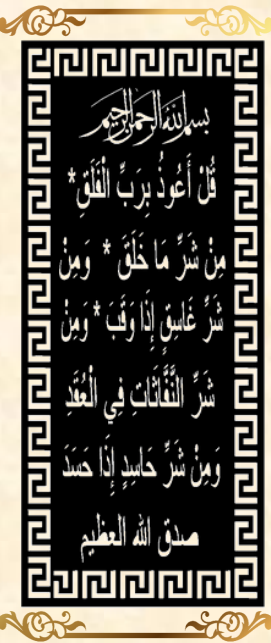 بسم الله الرحمن الرحيم
قُلْ أَعُوذُ بِرَبِّ الْفَلَقِ *
مِنْ شَرِّ مَا خَلَقَ * وَمِنْ
شَرِّ غَاسِقٍ إِذَا وَقَبَ * وَمِنْ
شَرِّ النَّفَّاثَاتِ فِي الْعُقَدِ
وَمِنْ شَرِّ حَاسِدٍ إِذَا حَسَدَ
صدق الله العظيم